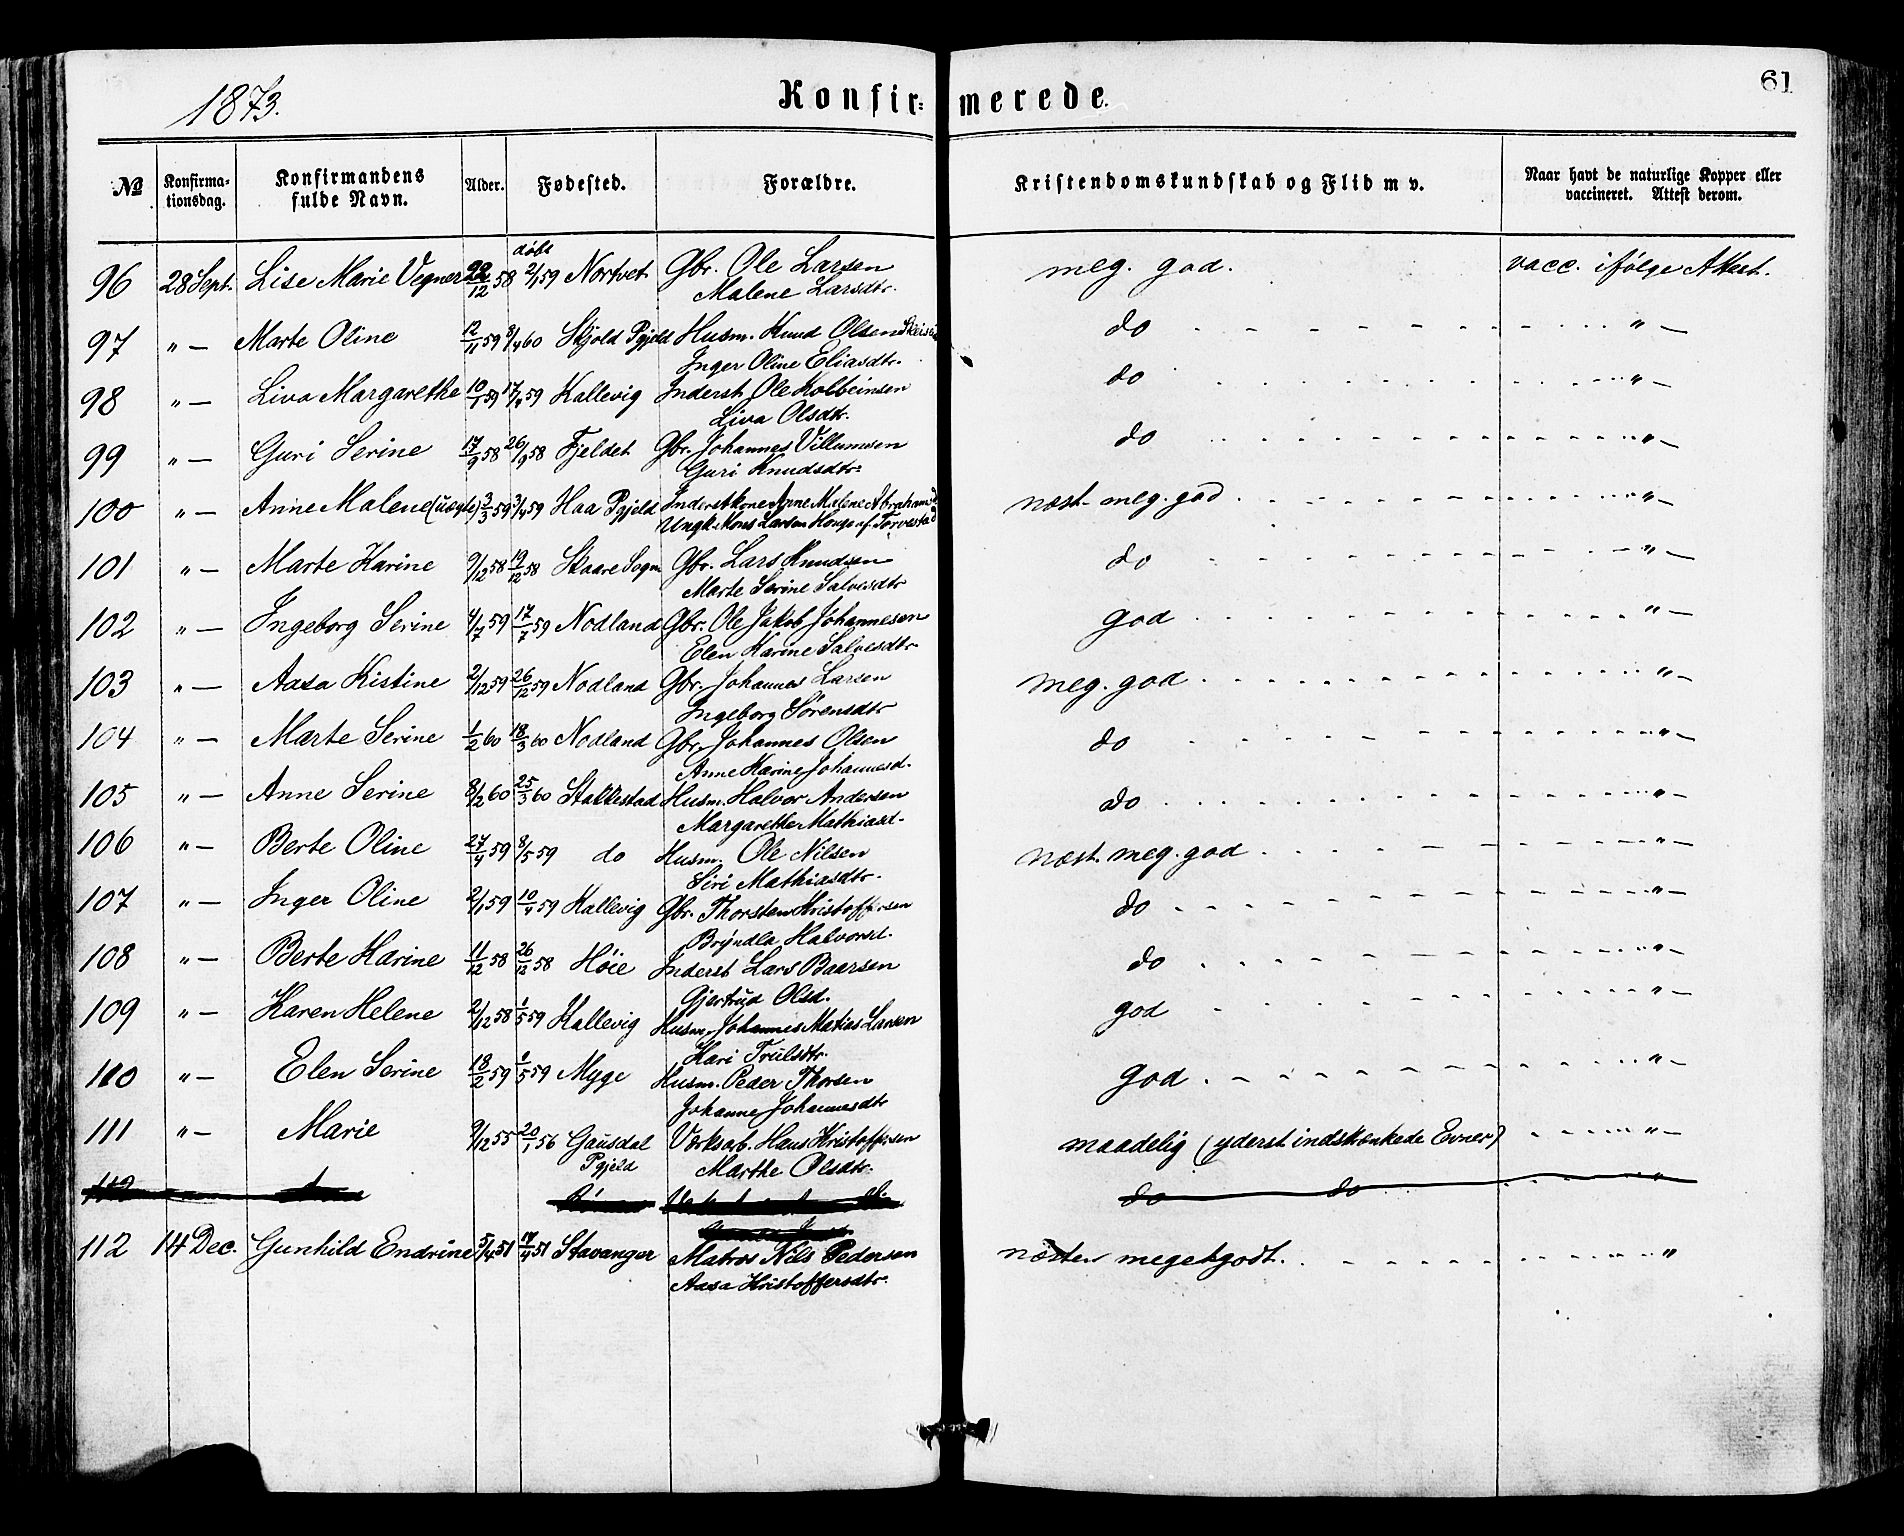 1873. Konfir- merede. 61
№ Konfirma- Konfirmandens Alder. Fødested. Forældre. Kristendomskundskab og Flid m v. Naar havt de naturlige Kopper eller
tionsdag. fulde Navn. vaccineret. Attest derom.
døbt
96 28 Sept. Lise Marie Vegner 22/12 58 2/1 59 Nortvet Gbr. Ole Larsen meg. god. vacc. ifølge Attest.
Malene Larsdtr.
97 " — Marte Oline 12/11 59 8/4 60 Skjold Pgjeld Husm. Knud Olsen do " —
Inger Oline Eliasdtr.
98 " — Liva Margarethe 10/1 59 17/4 59 Kallevig Inderst Ole Kolbeinsen do " —
Liva Olsdtr.
99 " — Guri Serine 17/9 58 26/9 58 Fjeldet Gbr. Johannes Villumsen do " —
Guri Knudsdtr.
100 " — Anne Malene (uægte) 3/3 59 3/4 59 Haa Pgjeld Inderstkone Anne Malene Abrahamsd næst- meg. god " —
Ungk. Mons Larsen Hauge af Torvestad
101 " — Marte Karine 9/12 58 19/12 58 Skaare Sogn Gbr. Lars Knudsen do " —
Marte Serine Salvesdtr
102 " — Ingeborg Serine 4/7 59 17/7 59 Nodland Gbr. Ole Jakob Johannesen god " —
Elen Karine Salvesdtr.
103 " — Aasa Kistine 2/12 59 26/12 59 Nodland Gbr. Johannes Larsen meg. god " —
Ingeborg Sørensdtr
104 " — Marte Serine 1/2 60 18/3 60 Nodland Gbr. Johannes Olsen do " —
Anne Karine Johannesd.
105 " — Anne Serine 8/2 60 25/3 60 Stakkestad Husm. Halvor Andersen do " —
Margarethe Mathiasd.
106 " — Berte Oline 27/4 59 8/5 59 do Husm. Ole Nilsen næst. meg. god " —
Siri Mathiasdtr.
107 " — Inger Oline 2/1 59 10/4 59 Kallevig Gbr. Thorsten Kristoffersen do " —
Bryndla Halvorsd.
108 " — Berte Karine 11/12 58 26/12 58 Høie Inderst Lars Baarsen do " —
Gjertrud Olsd.
109 " — Karen Helene 2/12 58 1/5 59 Kallevig Husm. Johannes Matias Larsen god " —
Kari Trulsdtr.
110 " — Elen Serine 18/2 59 1/5 59 Myge Husm. Peder Thorsen god " —
Johanne Johannesdtr
111 " — Marie 9/12 55 20/1 56 Gausdal Værksarb. Hans Kristoffersen maadelig (yderst indskænkede Evner) " —
Pgjeld Marthe Olsdtr.
112 do do "
112 14 Dec. Gunhild Endrine 5/4 51 14/4 51 Stavanger Matros Nils Pedersen næsten meget godt. "
Aasa Kristoffersdtr.